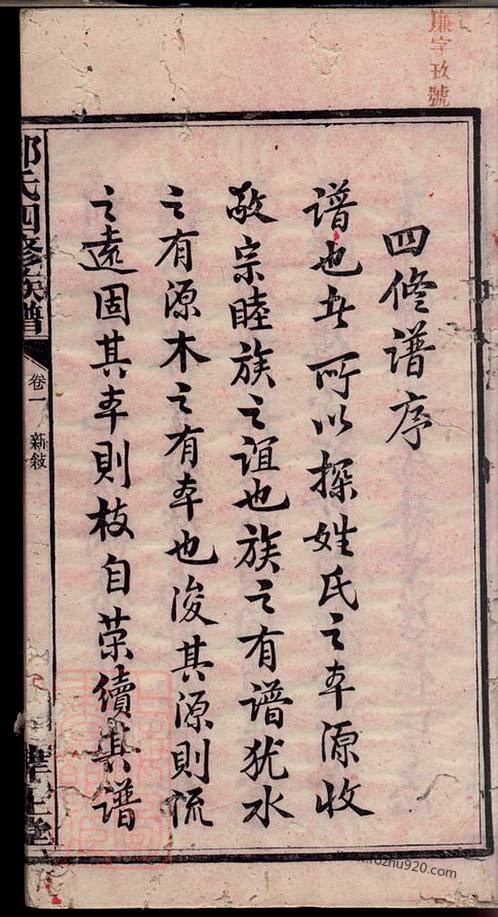 廉字玖號
四修譜序
譜也者所以探姓氏之本源收
敬宗睦族之誼也族之有譜猶水
之有源木之有本也浚其源則流
之遠固其本則枝自荣續其譜
氏四修族譜
卷一 新敍
堂
www.rozhu920.com